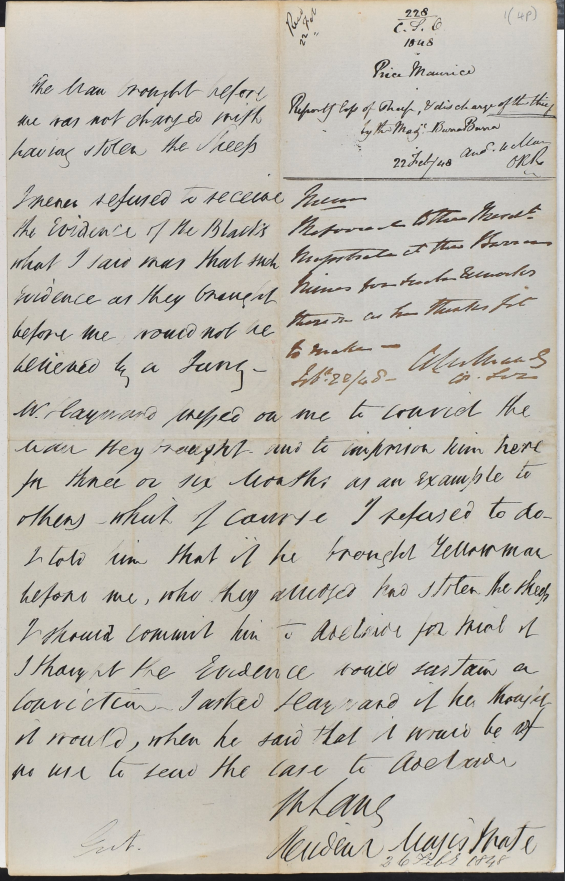 1(4P)
Recd
22 Feb
228
C.S.O
1848
Price Maurice
Reports loss of Sheep, & discharge of the thief
by the Magt. Burra Burra
22 Feb/48
The Man brought before
me was not charged with
having stolen the Sheep
I never refused to receive
the Evidence of the Blacks
what I said was that such
Evidence as they brought
before me would not be
believed by a Jury —
Memo
Referred to the Resdt
Magistrate at the Burra
Mines for such Remarks
thereon as he thinks fit
to make —
Feb. 22/48 —
Mr. Hayward pressed on me to convict the
Man they brought and to imprison him here
for three or six Months as an Example to
others — which of course I refused to do —
I told him that if he brought Yellowman
before me, who they alledged had stolen the sheep
I should commit him to Adelaide for trial if
I thought the Evidence would sustain a
conviction — I asked Hayward if he thought
it would, when he said that it would be of
no use to send the case to Adelaide
Lang
Resident Magistrate
26 Feby 1848